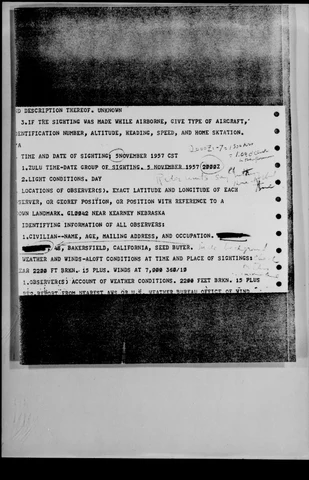 ND DESCRIPTION THEREOF. UNKNOWN
3.IF TRE SIGHTING WAS MADE WHILE AIRBORNE, CIVE TYPE OF AIRCRAFT,
DENTIFICATION NUMBER, ALTITUDE, HEADING, SPEED, AND HOME SKTATION.
A
TIME AND DATE OF SIGHTING: 5NOVEMBER 1957 CST
1.ZULU TIME-DATE GROUP OF SIGHTING. 5 NOVEMBER 1957 2000Z
2.LIGHT CONDITIONS. DAY
LOCATIONS OF OBSERVER(S). EXACT LATITUDE AND LONGITUDE OF EACH
SERVER, OR GEOREF POSITION, OR POSITION WITH REFERENCE TO A
OWN LANDMARK. GL0042 NEAR KEARNEY NEBRASKA
IDENTIFYING INFORMATION OF ALL OBSERVERS:
1.CIVILIAN--NAME, AGE, MAILING ADDRESS, AND OCCUPATION.
BAKERSFIELD, CALIFORNIA, SEED BUYER.
WEATHER AND WINDS-ALOFT CONDITIONS AT TIME AND PLACE OF SIGHTINGS:
EAR 2200 FT BRKN. 15 PLUS. WINDS AT 7,000 360/10
1.OBSERVER(S) ACCOUNT OF WEATHER CONDITIONS. 2200 FEET BRKN. 15 PLUS
REPORT FROM NEAREST AWS OR U.S. WEATHER BUREAU OFFICE OF WIND